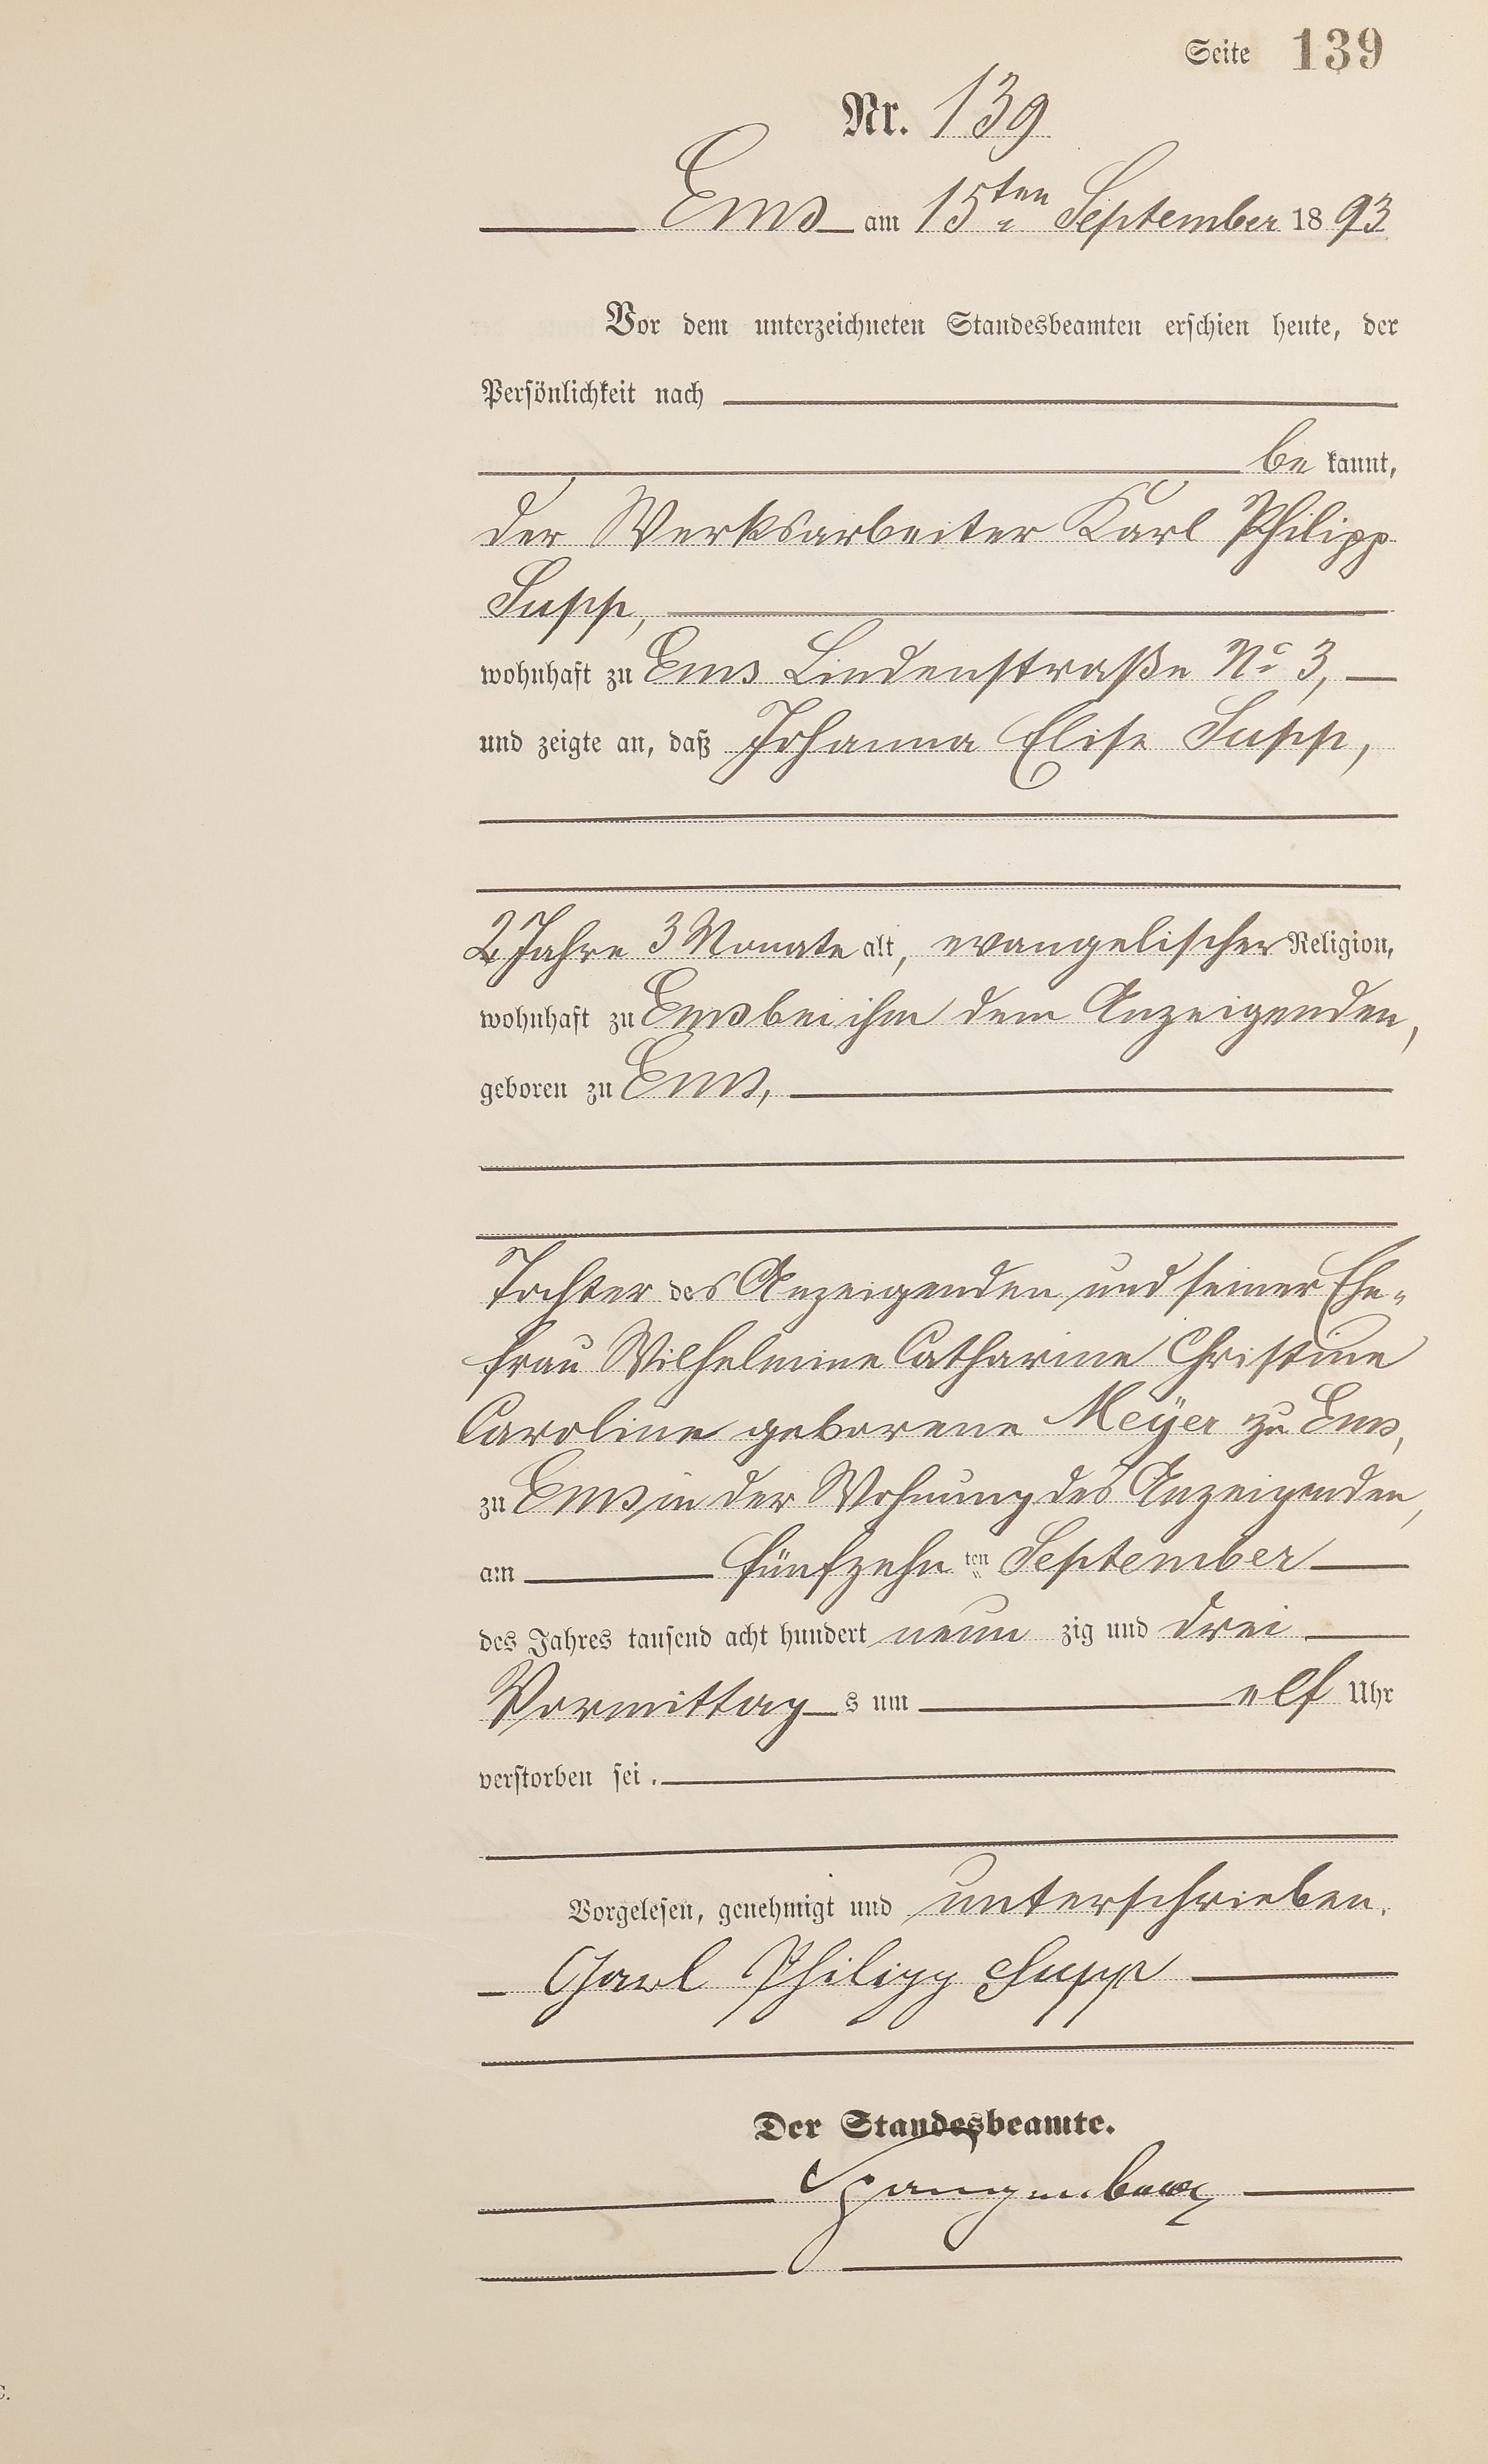 Seite 139
Nr. 139
Ems am 15ten September 1893
Vor dem unterzeichneten Standesbeamten erschien heute, der
Persönlichkeit nach
be kannt,
der Werksarbeiter Karl Philipp
Supp,
wohnhaft zu Ems Lindenstraße No 3,
und zeigte an, daß Johanna Elise Supp,
2 Jahre 3 Monate alt, evangelischer Religion,
wohnhaft zu Ems bei ihm dem Anzeigenden,
geboren zu Ems,
Tochter des Anzeigenden und seiner Ehe-
frau Wilhelmine Catharine Christine
Caroline geborene Meÿer zu Ems,
zu Ems in der Wohnung des Anzeigenden,
am fünfzehn ten September
des Jahres tausend acht hundert neun zig und drei
Vormittag s um elf Uhr
verstorben sei.
Vorgelesen, genehmigt und unterschrieben.
Charl Philipp Supp
Der Standesbeamte.